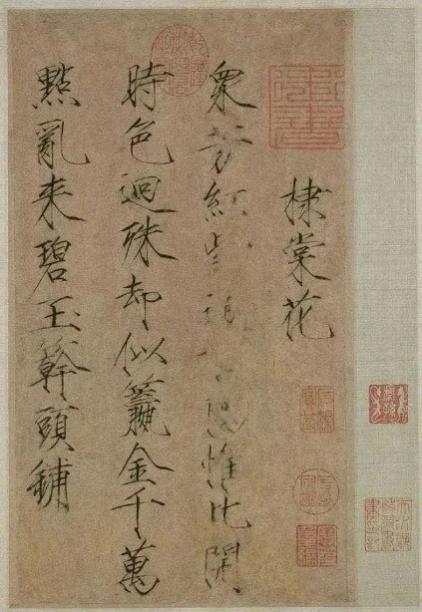 棣棠花
衆芳紅紫惟此開
時色迥殊却似籯金千萬
點亂来碧玉簳頭鋪